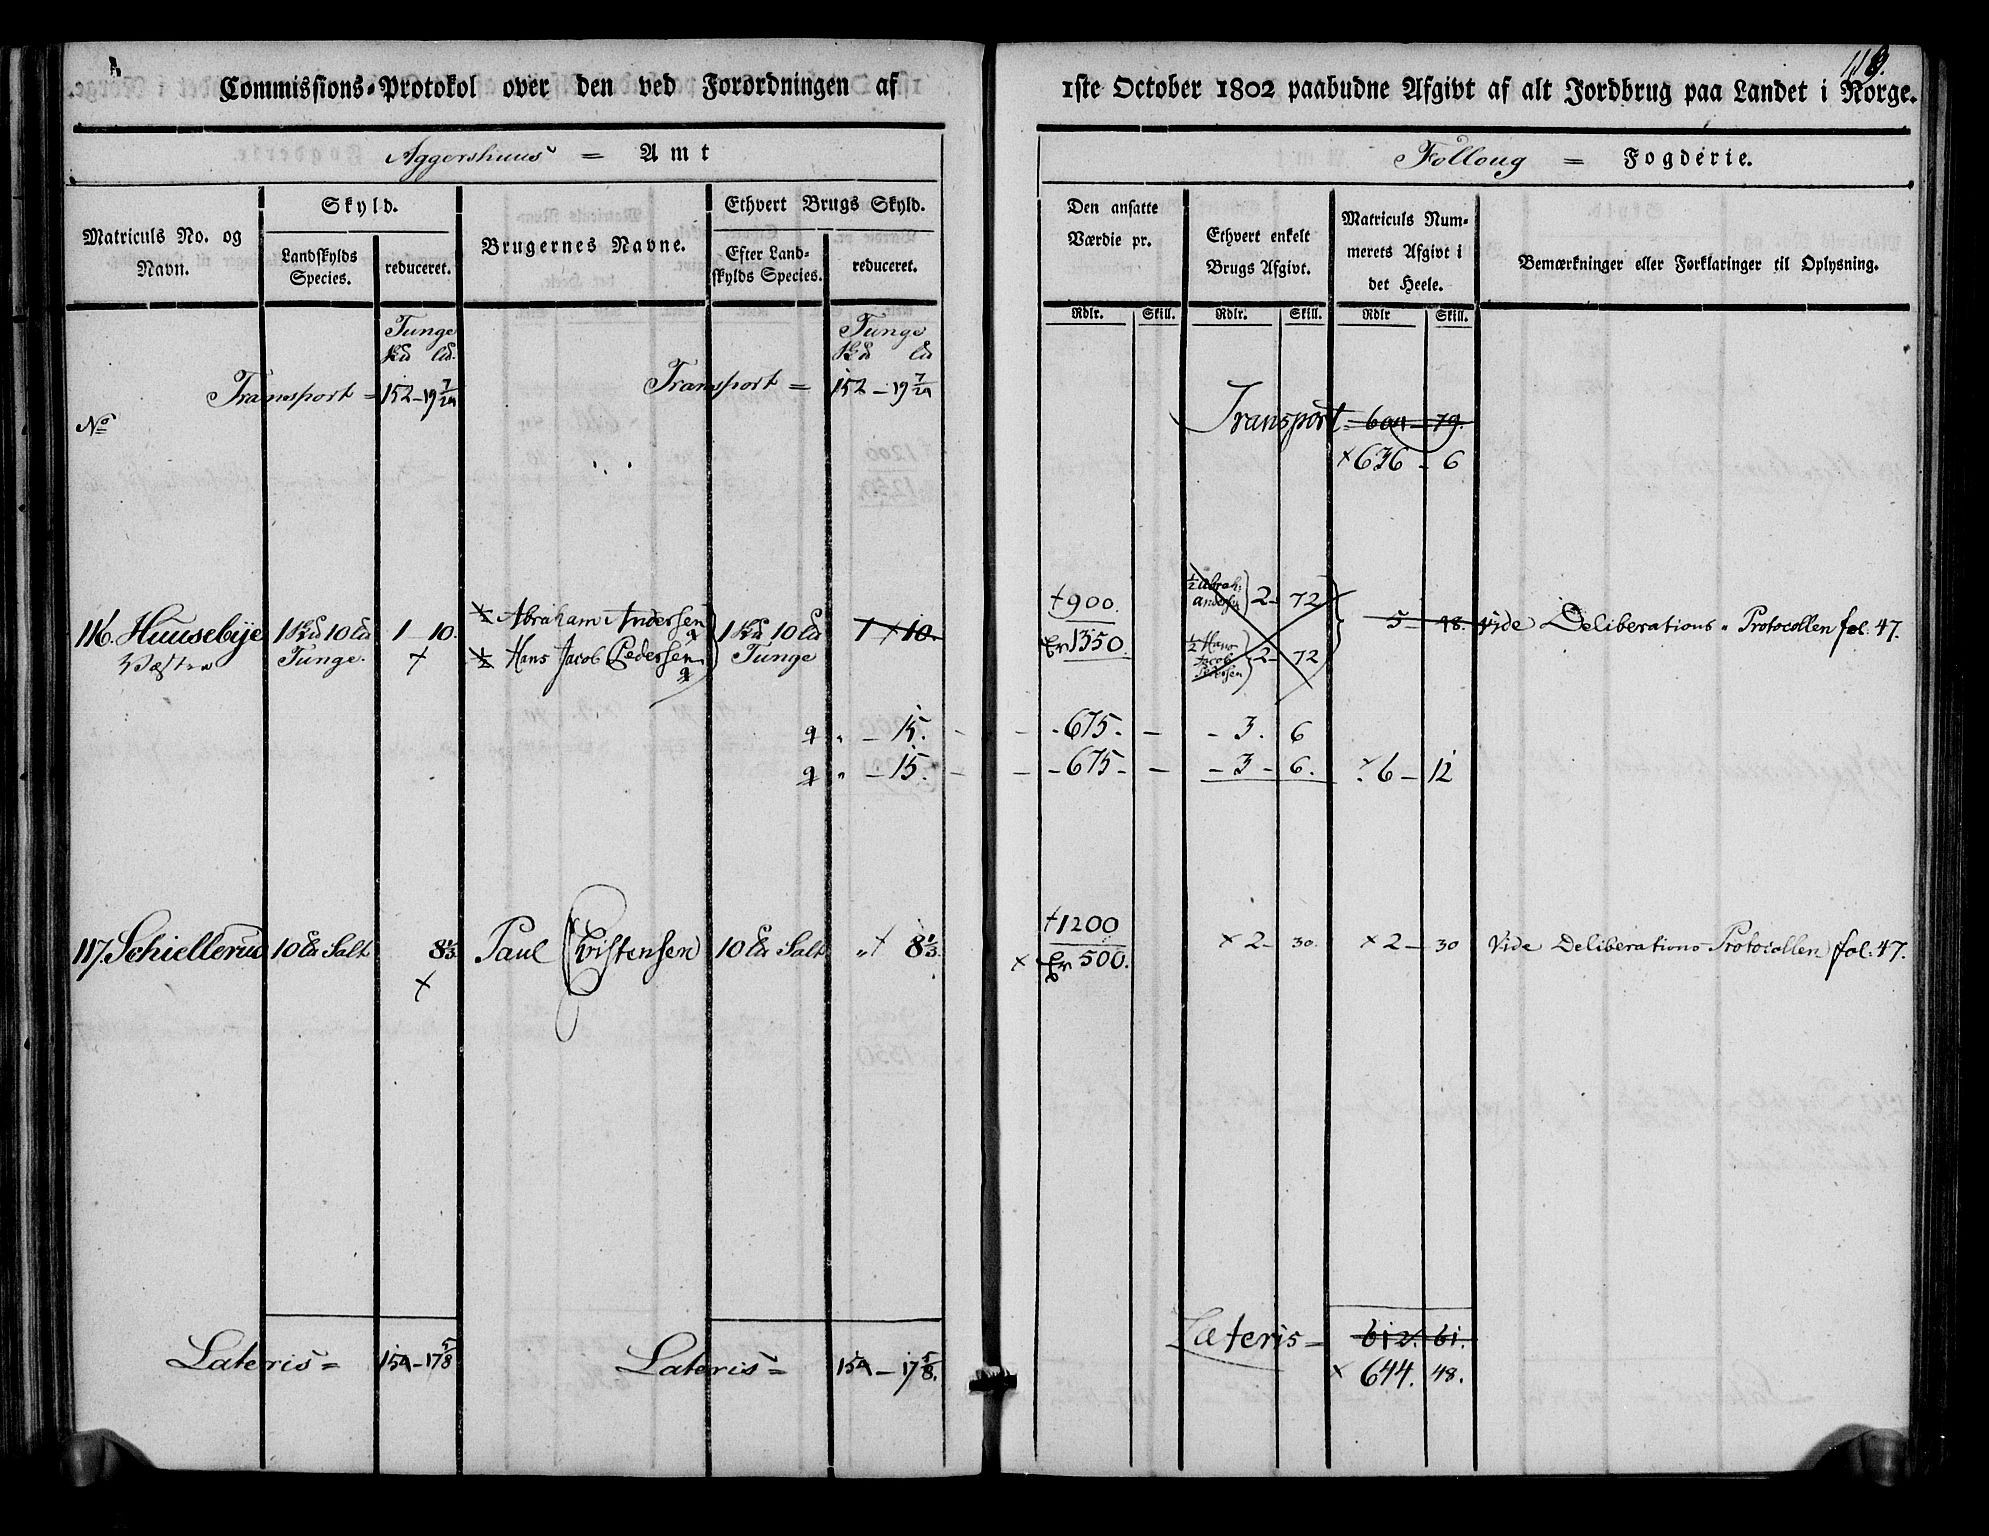 Commissions-Protokol over den ved Forordningen af
Aggershuus = Amt
Matriculs No. og Navn.
Skyld.
Landskylds Species.
reduceret.
Brugernes Navne.
Ethvert Brugs Skyld.
Efter Landskylds Species.
reduceret.
Tunge
Transport = 152 – 19 7/24
Transport =
Tunge
152 – 19 7/24
No
116. Huusebÿe
1 10
Tunge.
1 – 10.
½ Abraham Andersen
½ Hans Jacob Pedersen
1 10
Tunge
1 10.
– 15.
– 15.
117. Schiellerud 10 Salt 8⅓ Paul Cristensen 10 Salt 8⅓.
Lateris = 154 – 17 5/8
Lateris = 154 – 17 5/8.
1ste October 1802 paabudne Afgivt af alt Jordbrug paa Landet i Norge.
Folloug = Fogderie.
Den ansatte Værdie pr.
Ethvert enkelt Brugs Afgivt.
Matriculs Nummerets Afgivt i det Heele.
Bemærkninger eller Forklaringer til Oplysning.
Rdlr. Skill. Rdlr. Skill. Rdlr Skill.
Transport = 604 – 79.
× 636 – 6
† 900.
1350.
½ Abrah: Andersen 2 – 72
½ Hans Jacob Pedersen 2 – 72
5 – 48. Vide Deliberations-Protocollen fol. 47.
- 675. – - 3. 6
– - 675 - – - 3 – 6. 6 – 12
† 1200
× 500.
× 2 – 30. × 2 – 30 Vide Deliberations Protocollen fol. 47.
Lateris = 612. 61.
× 644. 48.